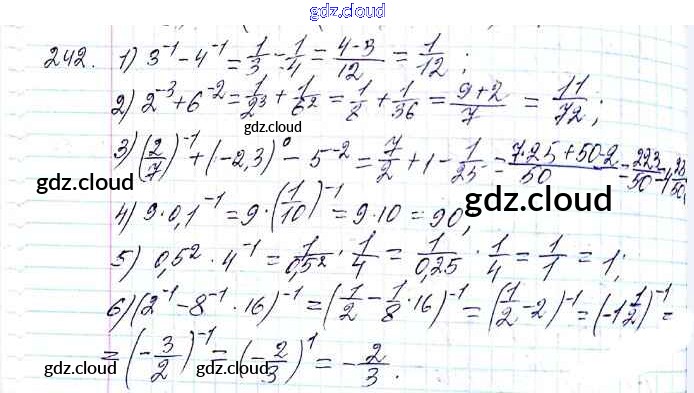 gdz.cloud
gdz.cloud
242. 1) 3⁻¹ - 4⁻¹ = 1/3 - 1/4 = (4-3)/12 = 1/12;
2) 2⁻³ + 6⁻² = 1/2³ + 1/6² = 1/8 + 1/36 = (9+2)/7 = 11/72;
gdz.cloud
3) (2/7)⁻¹ + (-2,3)⁰ - 5⁻² = 7/2 + 1 - 1/25 = (7·25+50-2)/50 = 223/50 = 4 23/50;
gdz.cloud
gdz.cloud
4) 9·0,1⁻¹ = 9·(1/10)⁻¹ = 9·10 = 90;
5) 0,5² · 4⁻¹ = 1/0,5² · 1/4 = 1/0,25 · 1/4 = 1/1 = 1;
6) (2⁻¹ - 8⁻¹ · 16)⁻¹ = (1/2 - 1/8 · 16)⁻¹ = (1/2 - 2)⁻¹ = (-1 1/2)⁻¹ =
= (-3/2)⁻¹ = (-2/3)¹ = -2/3.
gdz.cloud
gdz.cloud
gdz.cloud